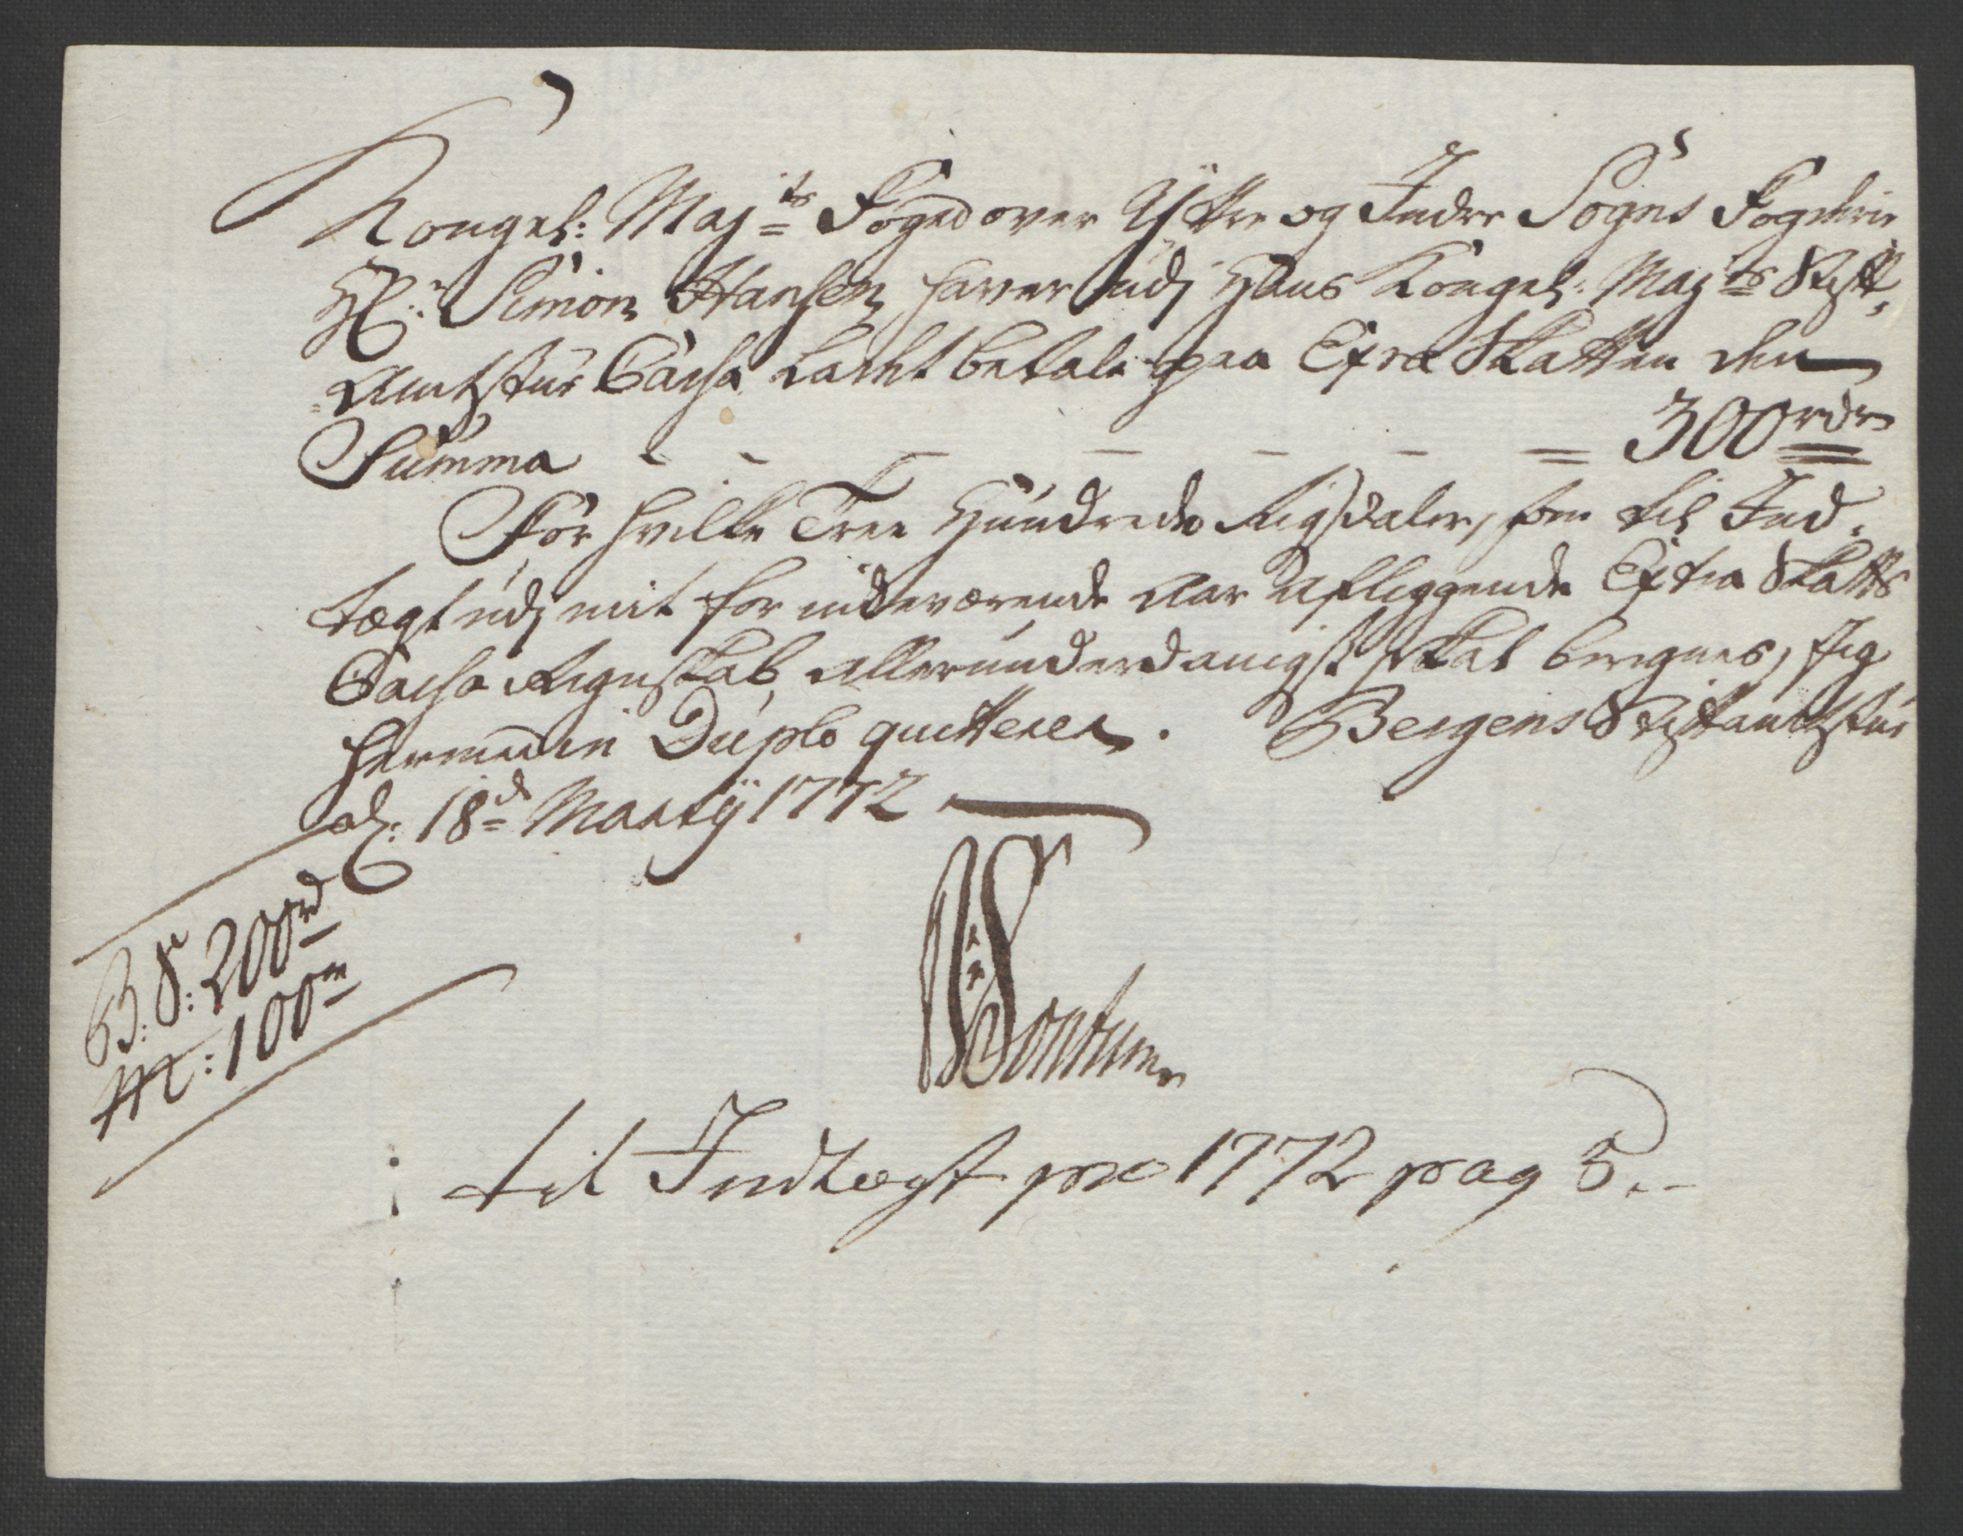 Kongel: Maj:ts Foged over Ÿttre og Indre Sogns Fogderie
Hr: Simon Hansen haver udj Hans Kongel: Maj:ts Stift-
Amtstue Cassa ladet betale paa Extra Skatten den
Summa - - - - - - = 300rdr
For hvilke Tree Hundrede Rigsdaler, som til Ind-
tægt udj mit for indeværende Aar aflæggende Extra Skatts
Cassa Regnskab allerunderdanigst skal beregnes, Jeg
hermed in Duplo qvitterer. Bergens Stiftamtstue
d: 18d Martÿ 1772
B: S: 200rd
M: 100rd
Sontum
til Indtægt pro 1772 pag 5.